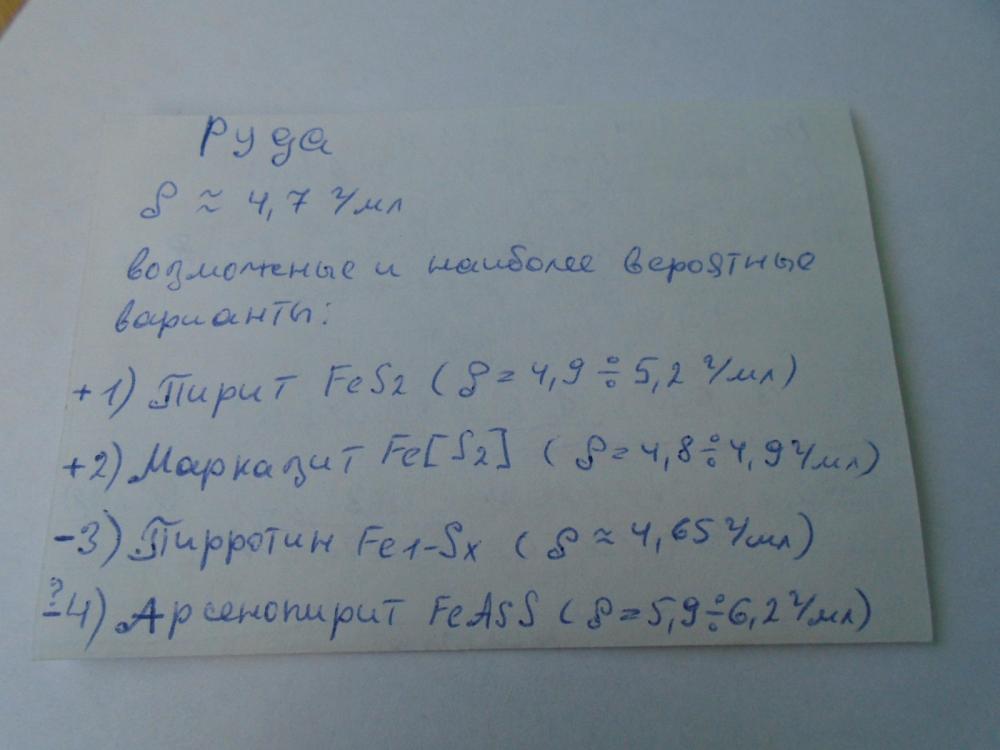 Руда
ρ ≈ 4,7 г/мл
возможные и наиболее вероятные
варианты:
+1) Пирит FeS2 (ρ = 4,9 ÷ 5,2 г/мл)
+2) Марказит Fe[S2] (ρ = 4,8 ÷ 4,9 г/мл)
-3) Пирротин Fe1-Sx (ρ ≈ 4,65 г/мл)
?-4) Арсенопирит FeAsS (ρ = 5,9 ÷ 6,2 г/мл)